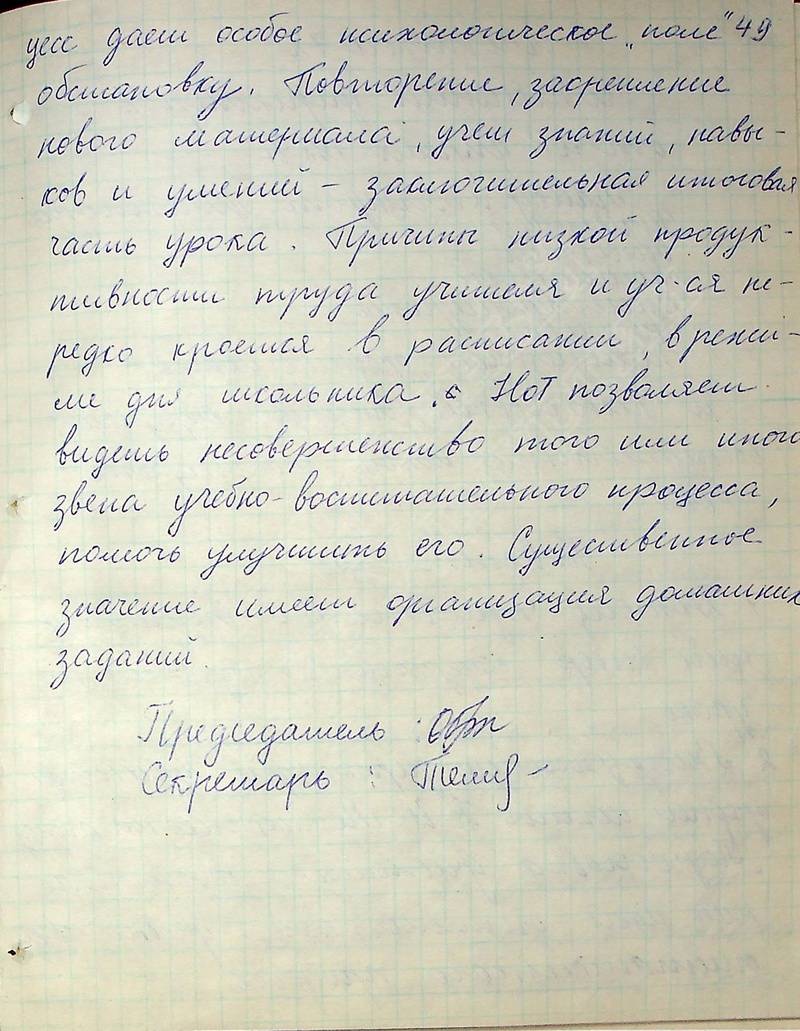 цесс дает особое психологическое „поле" 49
обстановку. Повторение, закрепление
нового материала, учет знаний, навы-
ков и умений – заключительная итоговая
часть урока. Причины низкой продук-
тивности труда учителя и уч-ся не-
редко кроется в расписании, в режи-
ме дня школьника. НОТ позволяет
видеть несовершенство того или иного
звена учебно-воспитательного процесса,
помочь улучшить его. Существенное
значение имеет организация домашних
заданий.
Председатель :
Секретарь :